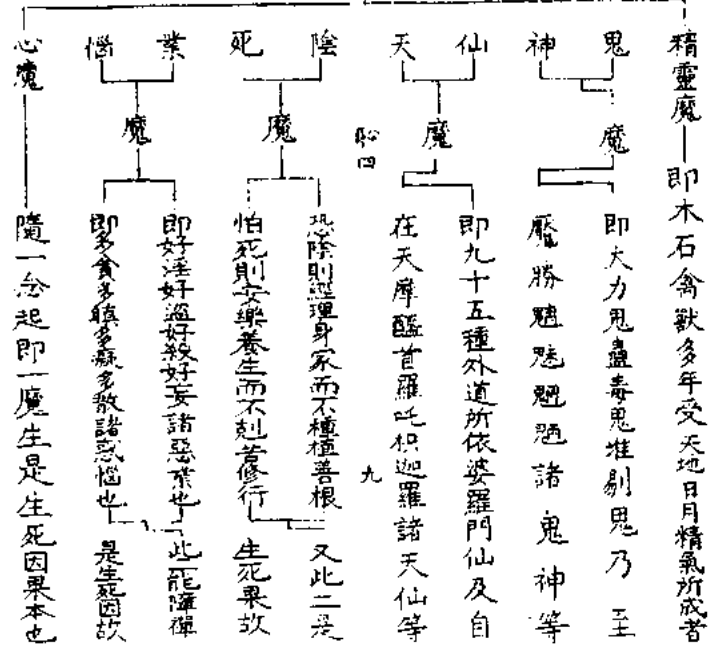 精靈魔 即木石禽獸多年受天地日月精氣所成者
鬼神魔
即大力鬼蠱毒鬼堆剔鬼乃至
魘勝魑魅魍魎諸鬼神等
仙天魔
即九十五種外道所依婆羅門仙及自
在天摩醯首羅吒枳迦羅諸天仙等
陰死魔
恐陰則經理身家而不種植善根
怕死則安樂養生而不剋苦修行
又此二是
生死果故
業惱魔
即好淫好盜好殺好妄諸惡業也
即多貪多瞋多癡多散諸惑惱也
此二能障禪
是生死因故
心魔 隨一念起即一魔生是生死因果本也
四
九